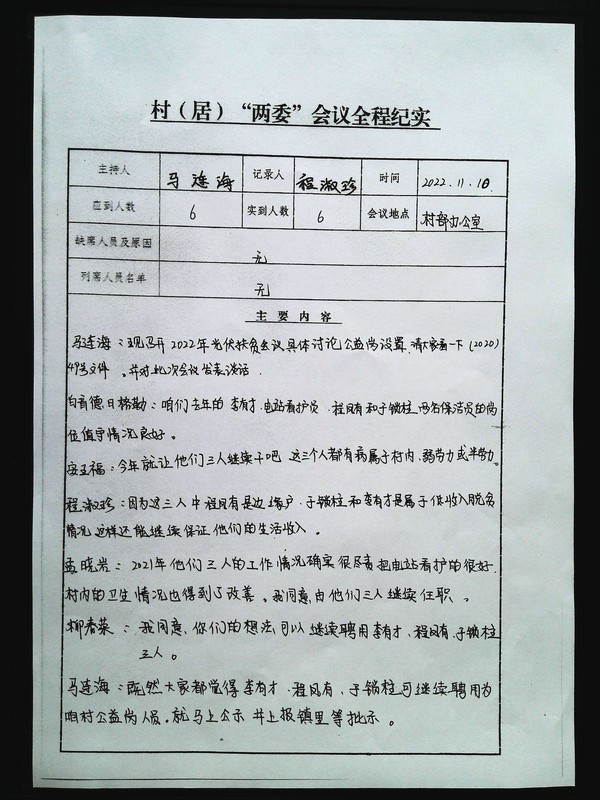 村（居）“两委”会议全程纪实
主持人 马连海 记录人 程淑珍 时间 2022.11.18
应到人数 6 实到人数 6 会议地点 村部办公室
缺席人员及原因 无
列席人员名单 无
主要内容
马连海：现召开2022年光伏扶贫会议具体讨论公益岗设置，请大家看一下（2020）
49号文件。并对此次会议发表谈话.
白音德日格勒：咱们去年的李有才.电站看护员.程凤有和于锁柱两名保洁员的岗
位值守情况良好。
安玉福：今年就让他们三人继续干吧 这三个人都有病属于村内.弱劳力或半劳力。
程淑珍：因为这三人中程凤有是边缘户.于锁柱和李有才是属于低收入脱贫
情况 这样还能继续保证他们的生活收入。
孟晓岩：2021年他们三人的工作情况确实很尽责把电站看护的很好.
村内的卫生情况也得到了改善。我同意由他们三人继续任职。
柳春荣：我同意、你们的想法，可以继续聘用李有才、程凤有、于锁柱
三人。
马连海：既然大家都觉得李有才、程凤有、于锁柱可继续聘用为
咱村公益岗人员，就马上公示并上报镇里等批示。